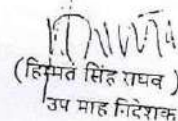 (हिम्मत सिंह राघव)
उप माह निदेशक